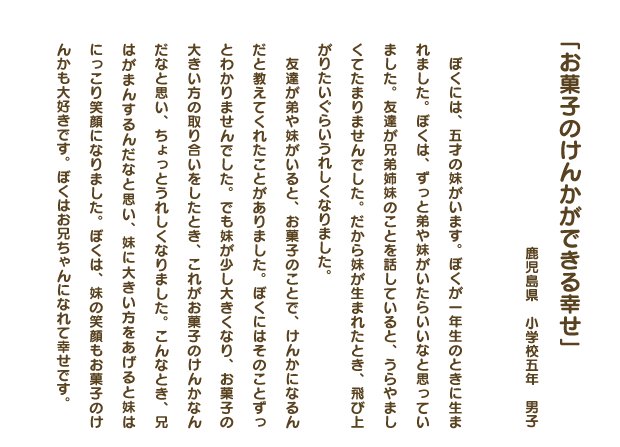 「お菓子のけんかができる幸せ」
鹿児島県　小学校五年　男子
　ぼくには、五才の妹がいます。ぼくが一年生のときに生ま
れました。ぼくは、ずっと弟や妹がいたらいいなと思ってい
ました。友達が兄弟姉妹のことを話していると、うらやまし
くてたまりませんでした。だから妹が生まれたとき、飛び上
がりたいぐらいうれしくなりました。
　友達が弟や妹がいると、お菓子のことで、けんかになるん
だと教えてくれたことがありました。ぼくにはそのことずっ
とわかりませんでした。でも妹が少し大きくなり、お菓子の
大きい方の取り合いをしたとき、これがお菓子のけんかなん
だなと思い、ちょっとうれしくなりました。こんなとき、兄
はがまんするんだなと思い、妹に大きい方をあげると妹は
にっこり笑顔になりました。ぼくは、妹の笑顔もお菓子のけ
んかも大好きです。ぼくはお兄ちゃんになれて幸せです。